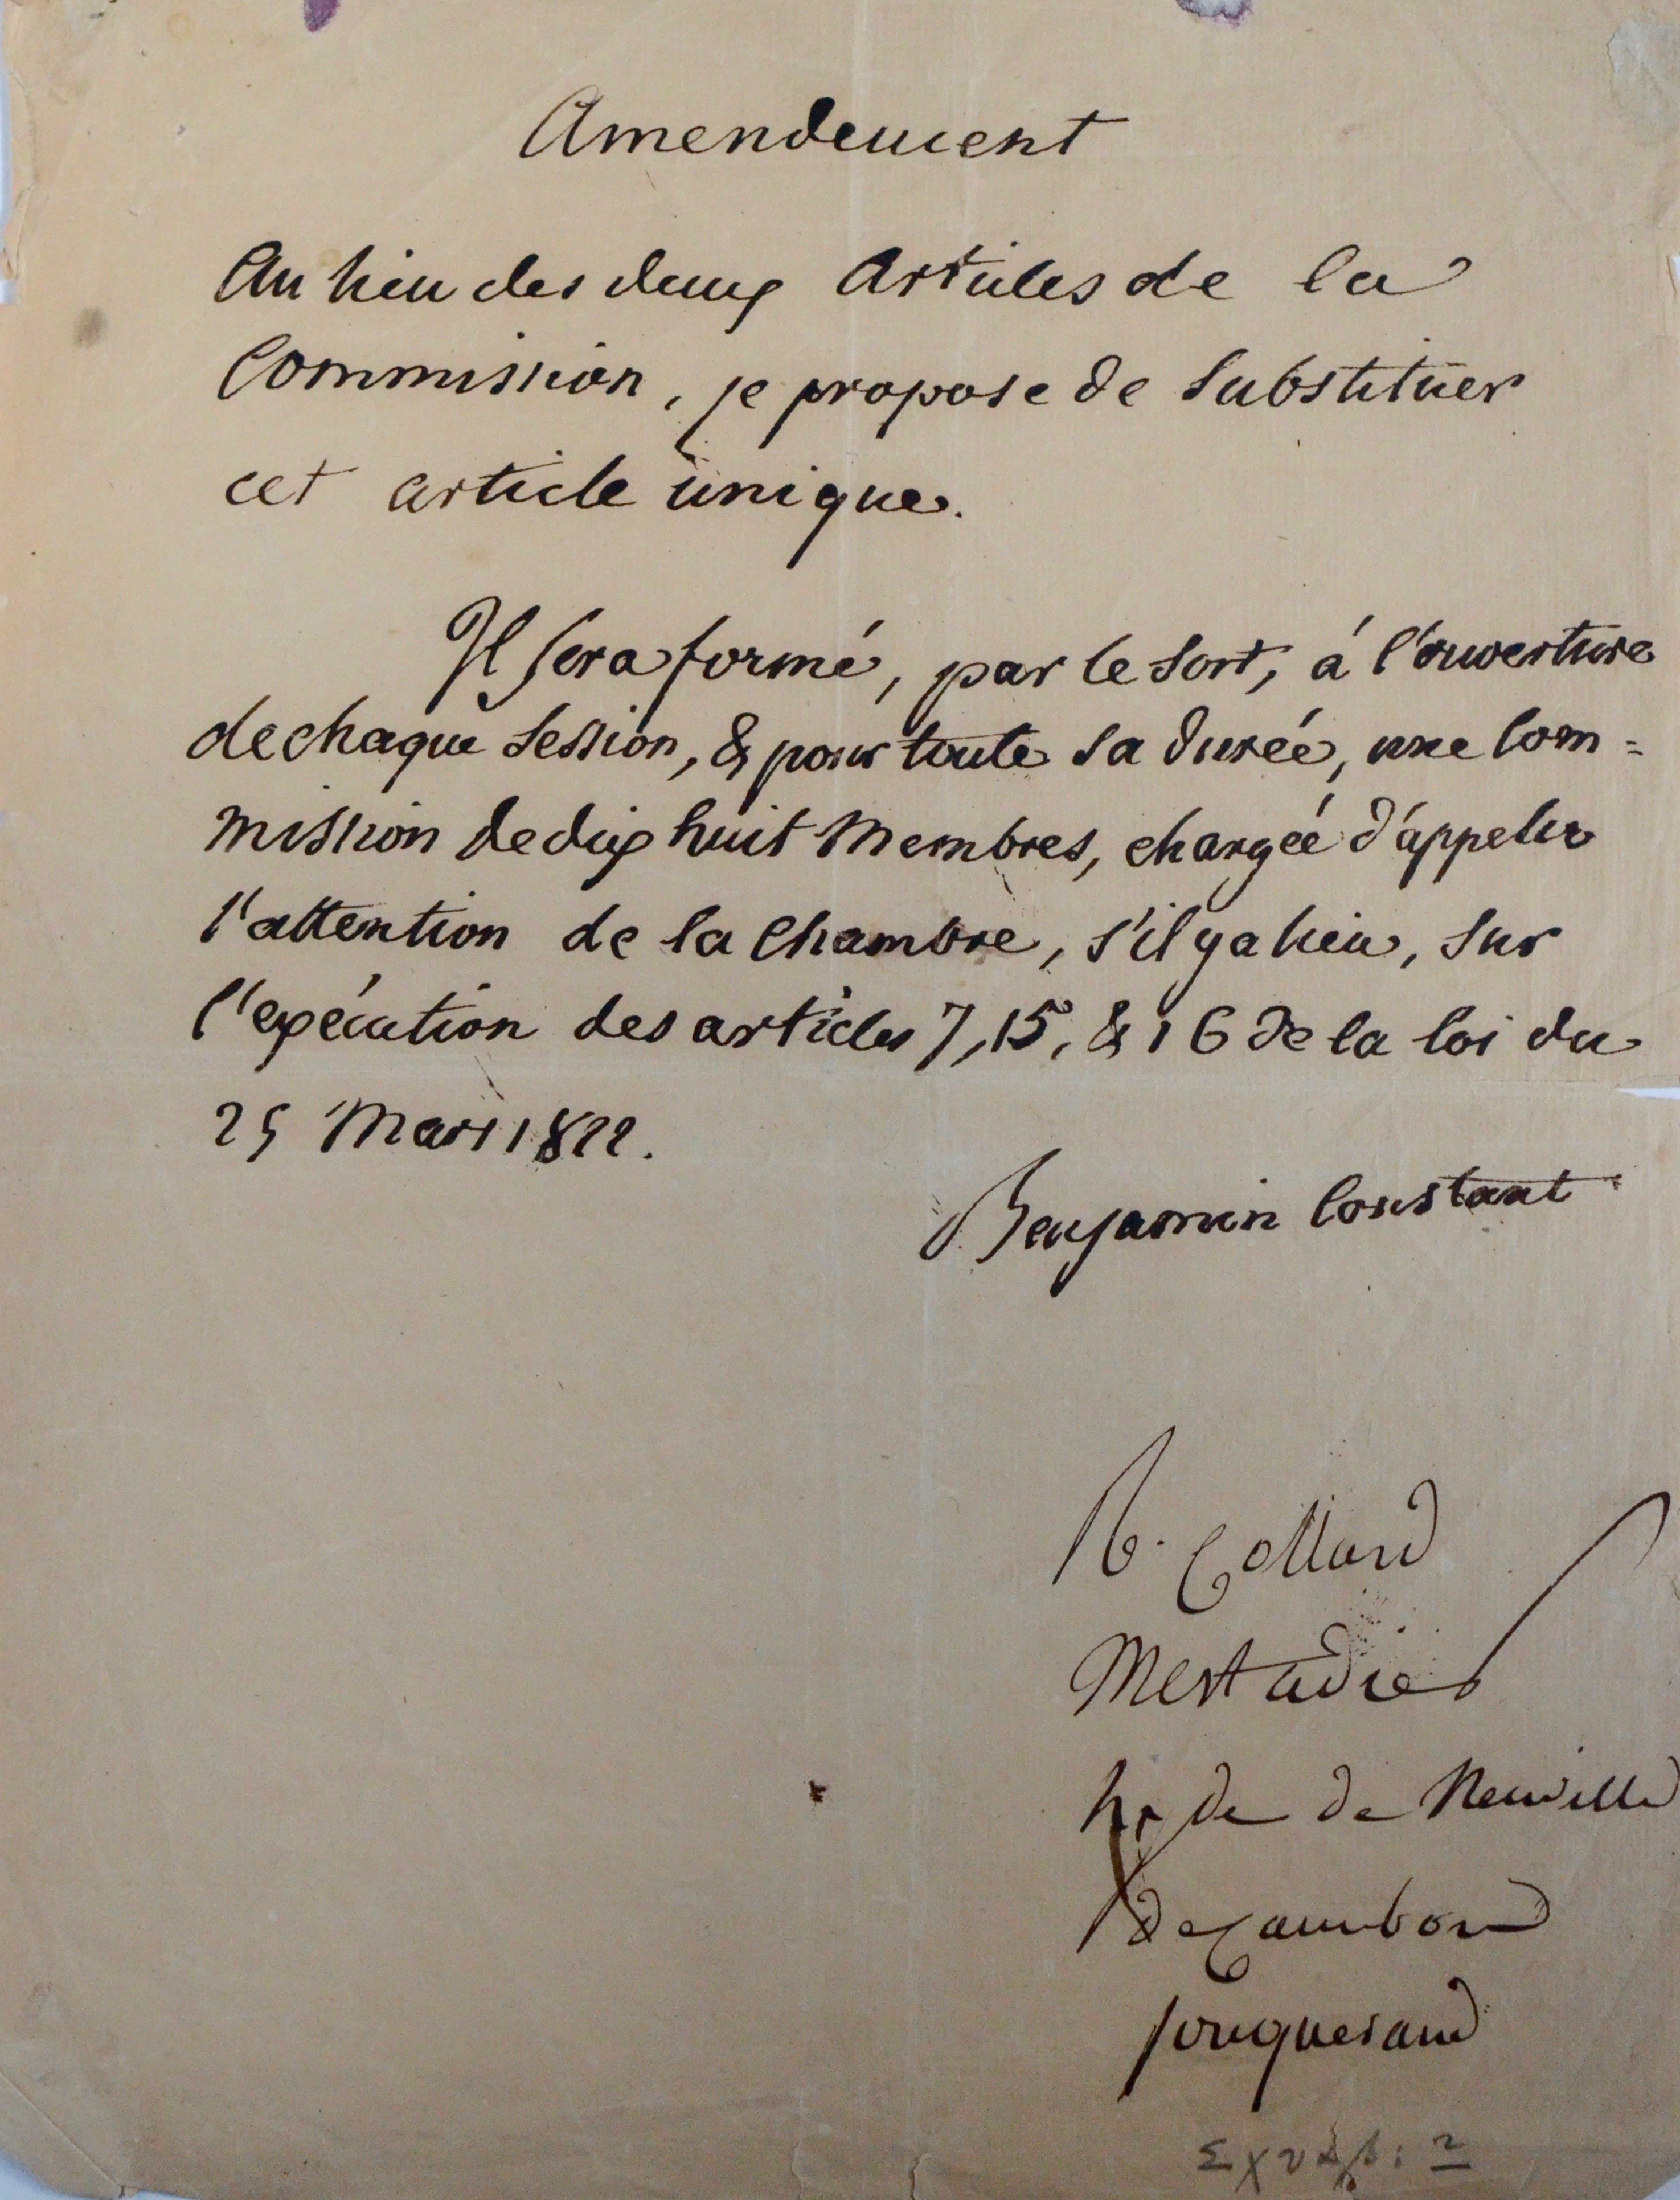 Amendement
Au lieu des deux Articles de la
Commission, je propose de substituer
cet article unique.
Il sera formé, par le sort, à l'ouverture
de chaque session, & pour toute sa durée, une Com=
mission de dix huit Membres, chargée d'appeler
l'attention de la Chambre, s'il y a lieu, sur
l'exécution des articles 7, 15, & 16 de la loi du
25 Mars 1822.
Benjamin Constant
R. Collard
Mestadier
hyde de Neuville
de Cambon